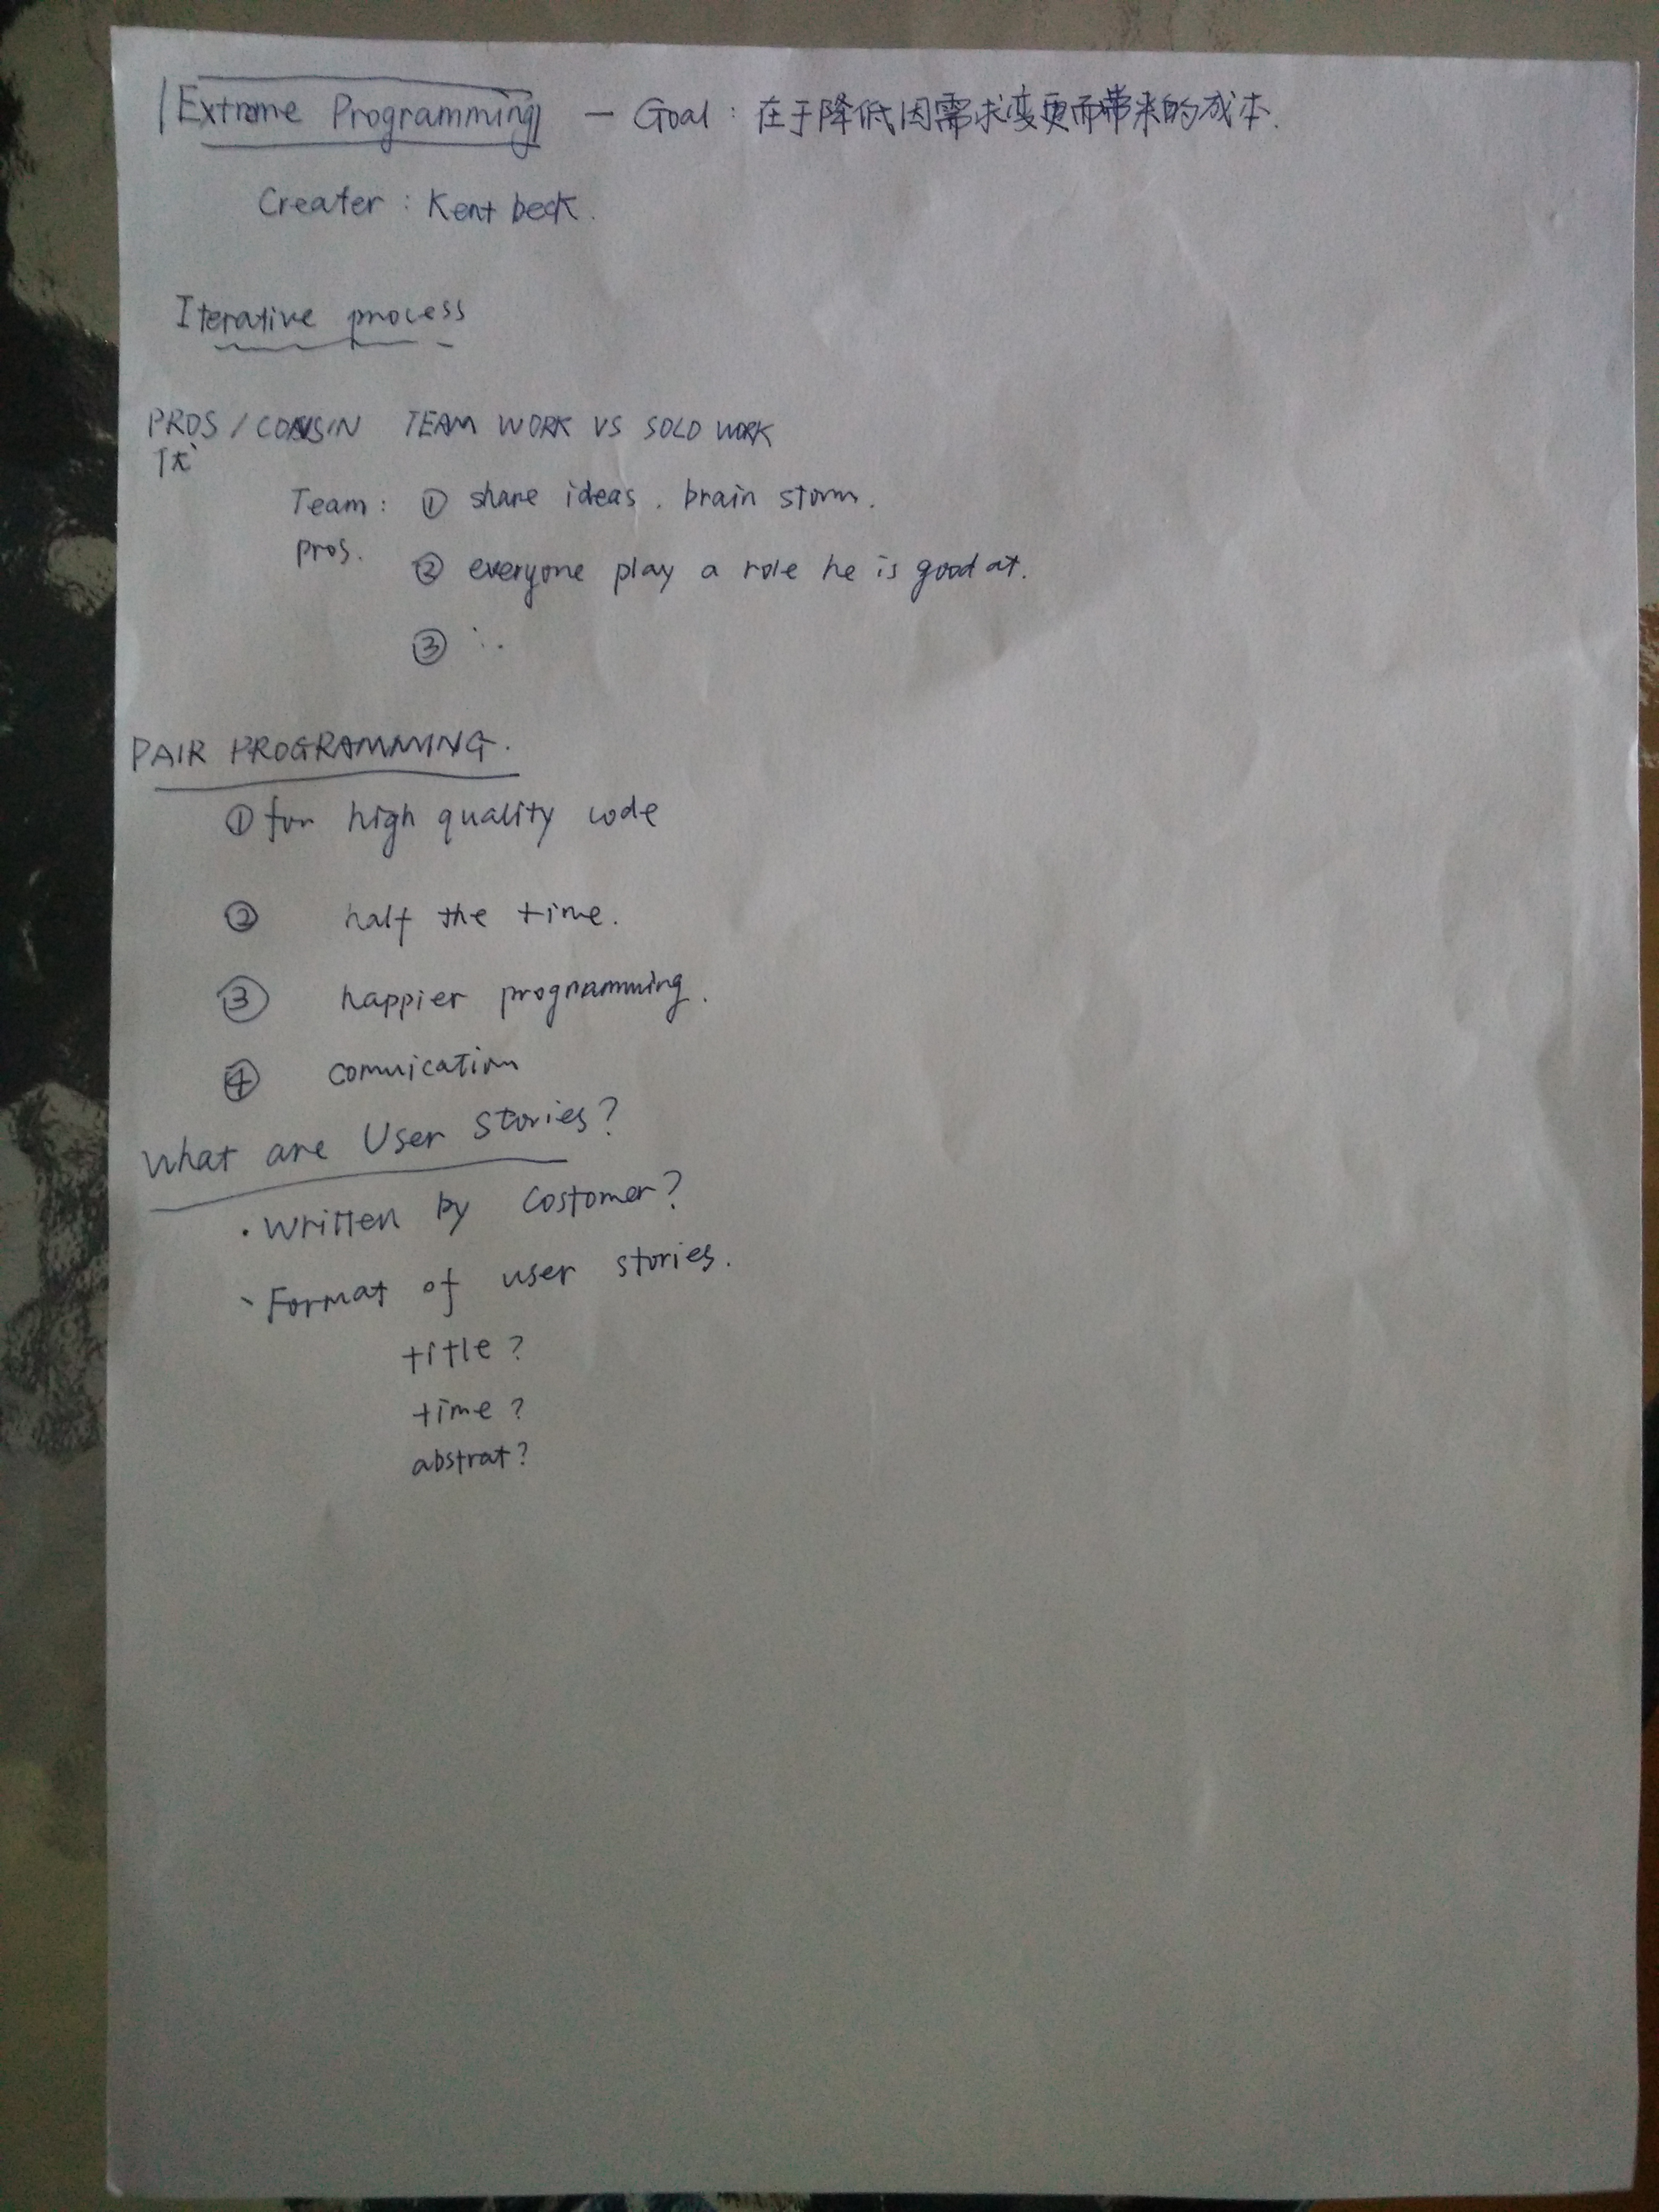 Extreme Programming — Goal: 在于降低因需求变更而带来的成本.
Creater: Kent beck.
Iterative process
PROS / CONS IN TEAM WORK VS SOLO WORK
优
Team: ① share ideas. brain storm.
pros. ② everyone play a role he is good at.
③ ...
PAIR PROGRAMMING.
① for high quality code
② half the time.
③ happier programming.
④ comnication
What are User Stories?
· Written by Costomer?
· Format of user stories.
title?
time?
abstrat?